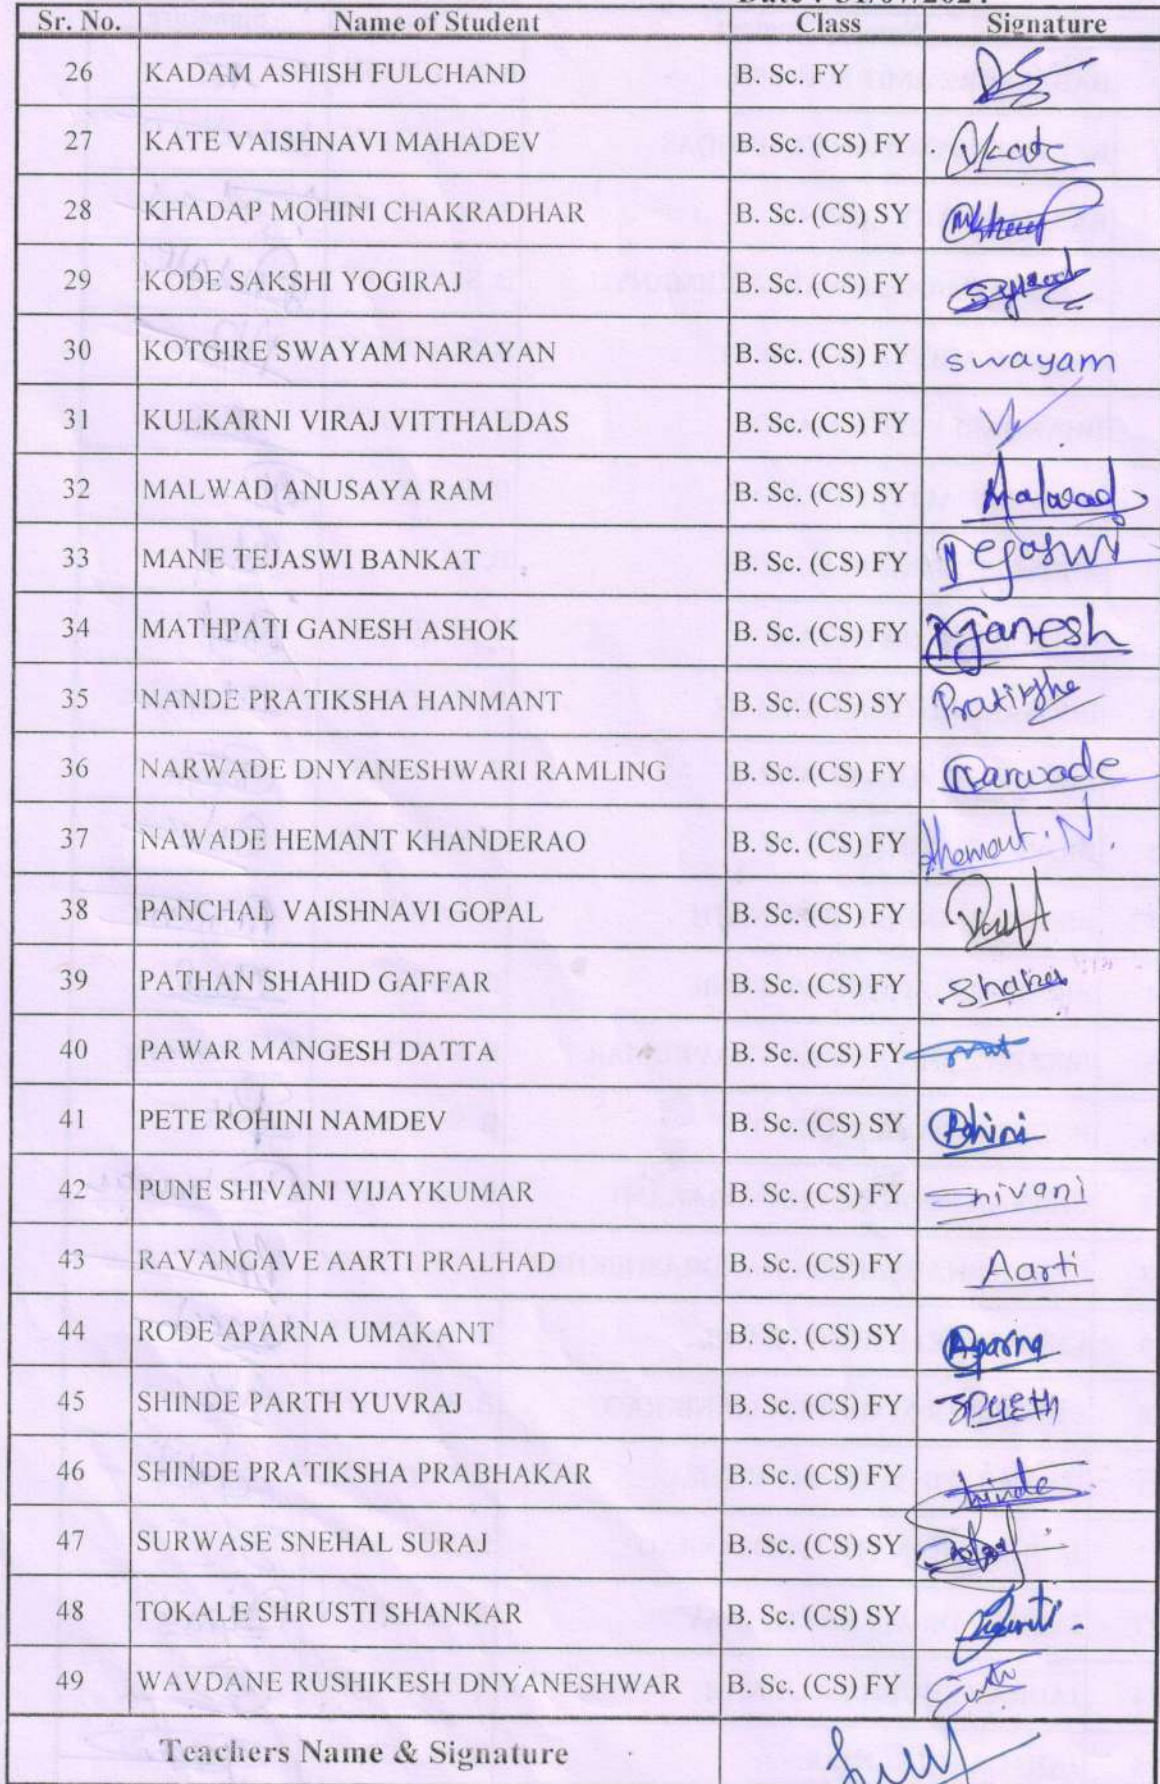 Sr. No. Name of Student Class Signature
26 KADAM ASHISH FULCHAND B. Sc. FY
27 KATE VAISHNAVI MAHADEV B. Sc. (CS) FY Vkate
28 KHADAP MOHINI CHAKRADHAR B. Sc. (CS) SY
29 KODE SAKSHI YOGIRAJ B. Sc. (CS) FY
30 KOTGIRE SWAYAM NARAYAN B. Sc. (CS) FY swayam
31 KULKARNI VIRAJ VITTHALDAS B. Sc. (CS) FY
32 MALWAD ANUSAYA RAM B. Sc. (CS) SY Malwad
33 MANE TEJASWI BANKAT B. Sc. (CS) FY Tejaswi
34 MATHPATI GANESH ASHOK B. Sc. (CS) FY Ganesh
35 NANDE PRATIKSHA HANMANT B. Sc. (CS) SY
36 NARWADE DNYANESHWARI RAMLING B. Sc. (CS) FY Narwade
37 NAWADE HEMANT KHANDERAO B. Sc. (CS) FY Hemant. N.
38 PANCHAL VAISHNAVI GOPAL B. Sc. (CS) FY
39 PATHAN SHAHID GAFFAR B. Sc. (CS) FY
40 PAWAR MANGESH DATTA B. Sc. (CS) FY
41 PETE ROHINI NAMDEV B. Sc. (CS) SY Rohini
42 PUNE SHIVANI VIJAYKUMAR B. Sc. (CS) FY Shivani
43 RAVANGAVE AARTI PRALHAD B. Sc. (CS) FY Aarti
44 RODE APARNA UMAKANT B. Sc. (CS) SY Aparna
45 SHINDE PARTH YUVRAJ B. Sc. (CS) FY
46 SHINDE PRATIKSHA PRABHAKAR B. Sc. (CS) FY Shinde
47 SURWASE SNEHAL SURAJ B. Sc. (CS) SY
48 TOKALE SHRUSTI SHANKAR B. Sc. (CS) SY
49 WAVDANE RUSHIKESH DNYANESHWAR B. Sc. (CS) FY
Teachers Name & Signature